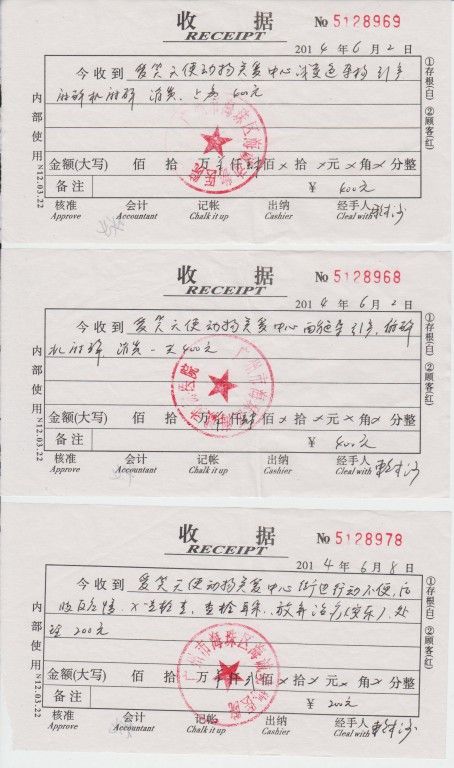 收 据
RECEIPT
№ 5128969
2014 年 6 月 2 日
今收到 爱笑天使动物关爱中心 深麦色 引产
麻醉机麻醉 消炎 600元
金额(大写) 佰 拾 万 仟 陆佰 × 拾 × 元 × 角 × 分整
备注 ¥ 600元
核准 会计 记帐 出纳 经手人
Approve Accountant Chalk it up Cashier Cleal with
内部使用 N12.03.22
①存根(白) ②顾客(红)
广州市海珠区 医院
收 据
RECEIPT
№ 5128968
2014 年 6 月 2 日
今收到 爱笑天使动物关爱中心 引产, 麻醉
机麻醉 消炎 一天 400元
金额(大写) 佰 拾 万 仟 肆佰 × 拾 × 元 × 角 × 分整
备注 ¥ 400元
核准 会计 记帐 出纳 经手人
Approve Accountant Chalk it up Cashier Cleal with
内部使用 N12.03.22
①存根(白) ②顾客(红)
广州市海珠区 医院
收 据
RECEIPT
№ 5128978
2014 年 6 月 8 日
今收到 爱笑天使动物关爱中心 街边行动不便, 后
肢 X光检查, 放弃治疗(安乐), 处
理 200元
金额(大写) 佰 拾 万 仟 贰佰 × 拾 × 元 × 角 × 分整
备注 ¥ 200元
核准 会计 记帐 出纳 经手人
Approve Accountant Chalk it up Cashier Cleal with
内部使用 N12.03.22
①存根(白) ②顾客(红)
广州市海珠区海 医院